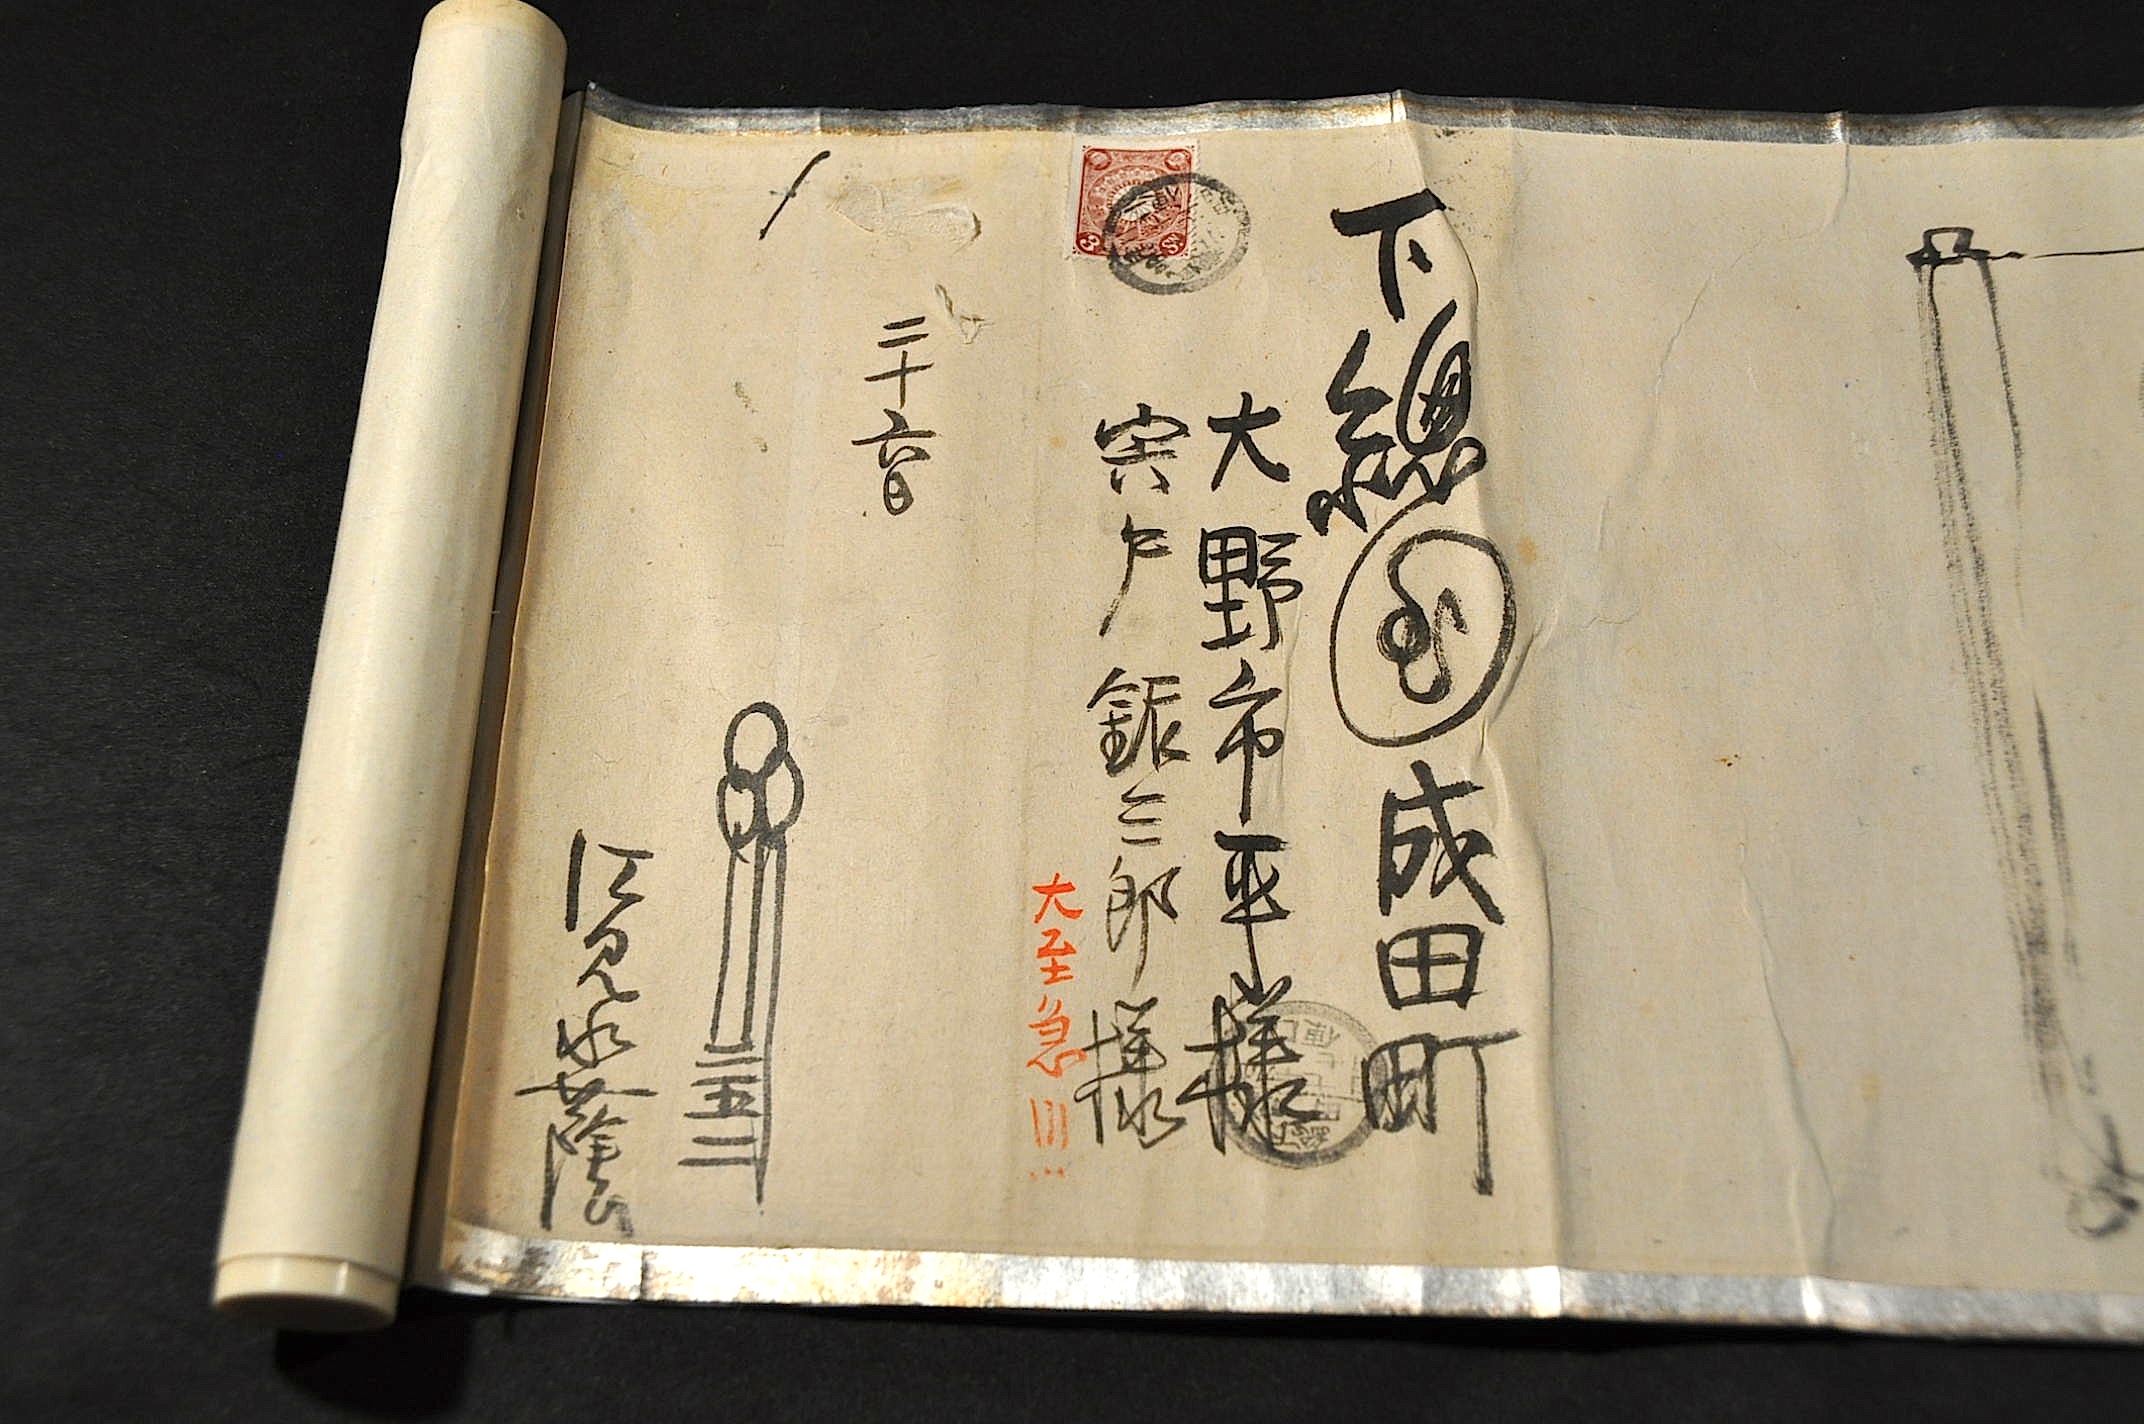 下總 成田町
大野市平様
宍戸銀三郎様
大至急
二十六日
二五二
江見水蔭